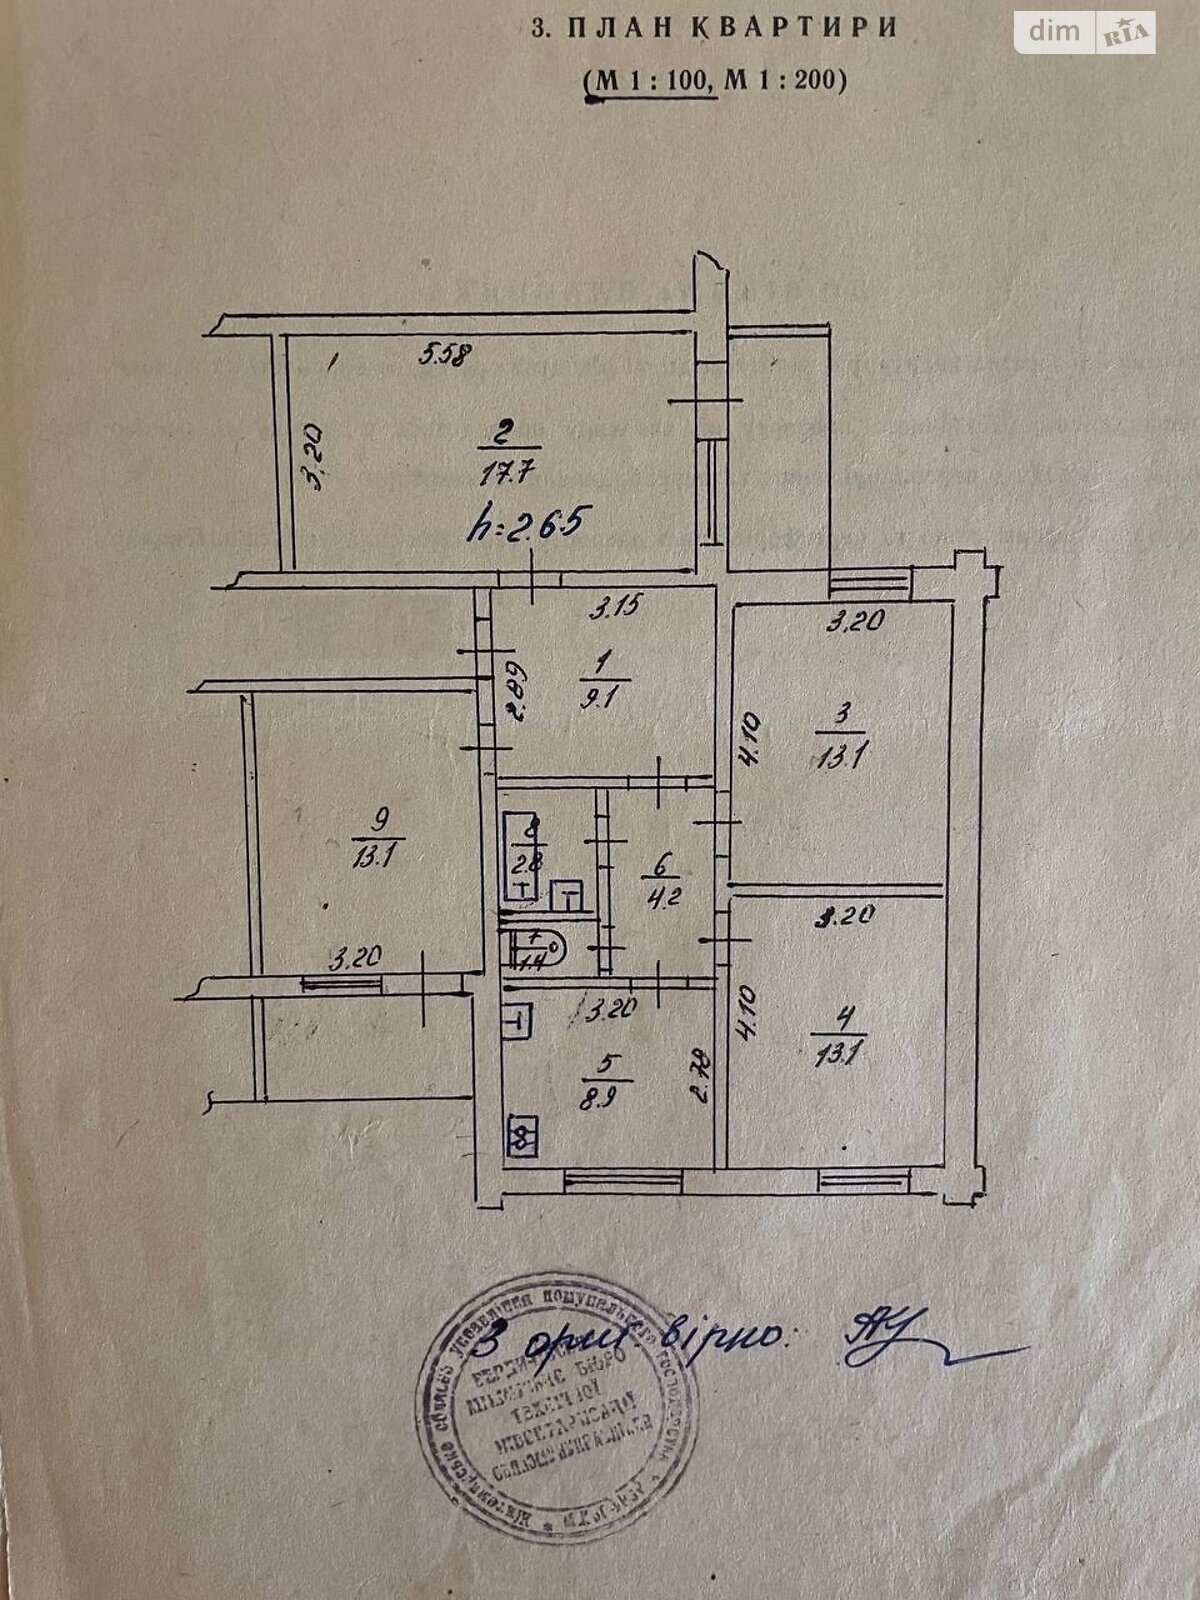 3. ПЛАН КВАРТИРИ
dim RIA
(М 1 : 100, М 1 : 200)
5.58
3.20
2
17.7
h=2.65
3.15
3.20
2.89
1
9.1
4.10
3
13.1
9
13.1
8
2.8
6
4.2
3.20
3.20
7
1.4
3.20
4.10
4
13.1
5
8.9
2.78
З ориг. вірно:
управління комунального господарства
БЮРО